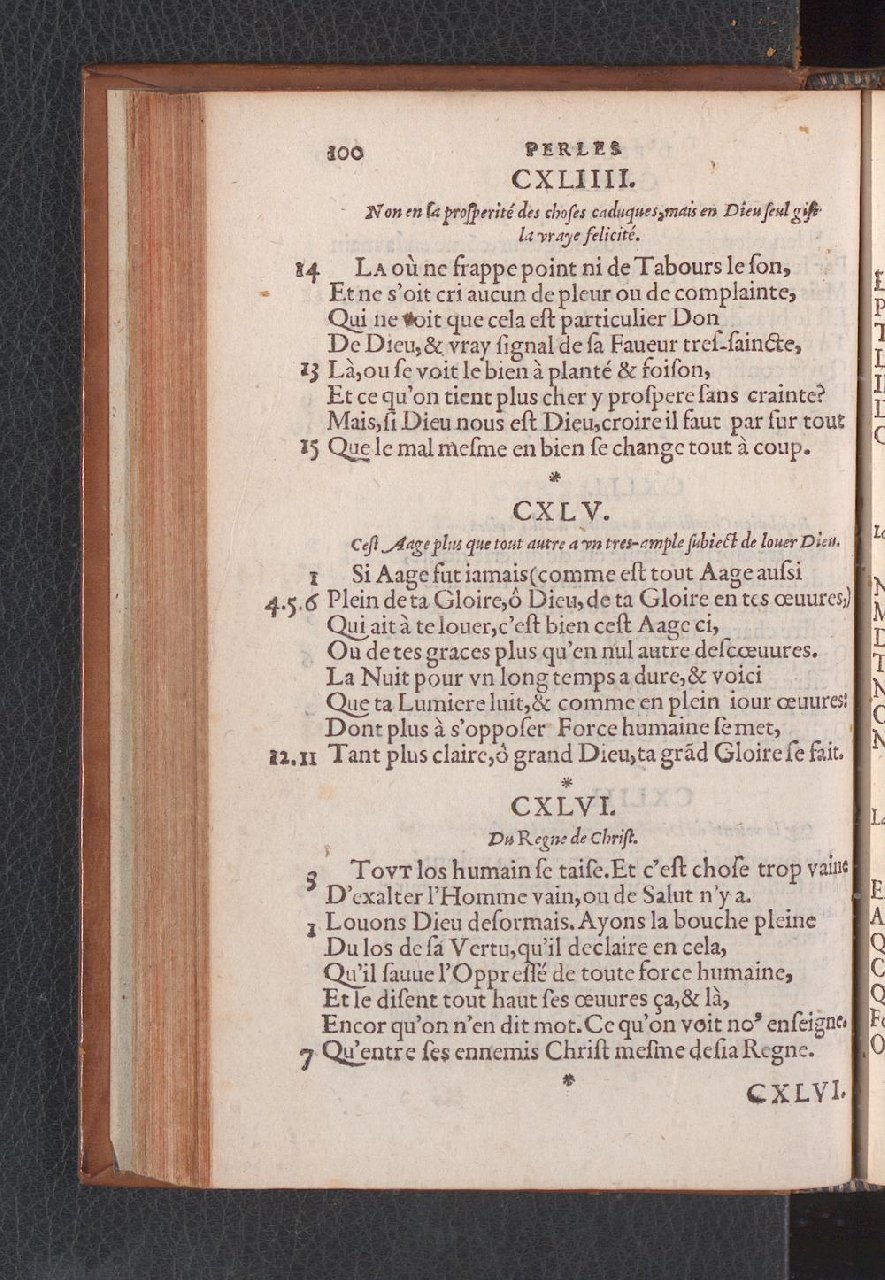 100 PERLES
CXLIIII.
Non en la proſperité des choſes caduques, mais en Dieu ſeul giſt
la vraye felicité.
14 LA où ne frappe point ni de Tabours le ſon,
Et ne s'oit cri aucun de pleur ou de complainte,
Qui ne voit que cela eſt particulier Don
De Dieu, & vray ſignal de ſa Faueur treſ-ſaincte,
13 Là, ou ſe voit le bien à planté & foiſon,
Et ce qu'on tient plus cher y proſpere ſans crainte?
Mais, ſi Dieu nous eſt Dieu, croire il faut par ſur tout
15 Que le mal meſme en bien ſe change tout à coup.
*
CXLV.
Ceſt Aage plus que tout autre a vn tres-ample ſubiect de louer Dieu.
1 Si Aage fut iamais (comme eſt tout Aage auſsi
4.5.6 Plein de ta Gloire, ô Dieu, de ta Gloire en tes œuures,)
Qui ait à te louer, c'eſt bien ceſt Aage ci,
Ou de tes graces plus qu'en nul autre deſcœuures.
La Nuit pour vn long temps a dure, & voici
Que ta Lumiere luit, & comme en plein iour œuures:
Dont plus à s'oppoſer Force humaine ſe met,
12.11 Tant plus claire, ô grand Dieu, ta grãd Gloire ſe fait.
*
CXLVI.
Du Regne de Chriſt.
3 TOVT los humain ſe taiſe. Et c'eſt choſe trop vaine
D'exalter l'Homme vain, ou de Salut n'y a.
1 Louons Dieu deſormais. Ayons la bouche pleine
Du los de ſa Vertu, qu'il declaire en cela,
Qu'il ſauue l'Oppreſſé de toute force humaine,
Et le diſent tout haut ſes œuures ça, & là,
Encor qu'on n'en dit mot. Ce qu'on voit noꝰ enſeigne.
7 Qu'entre ſes ennemis Chriſt meſme deſia Regne.
*
CXLVI.